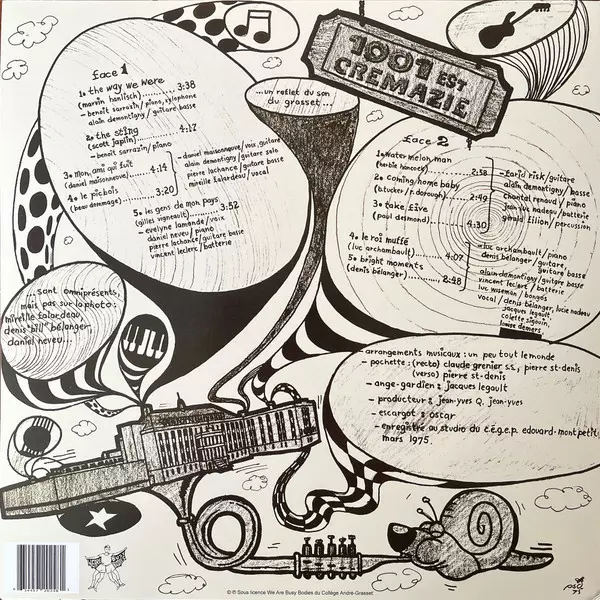 1001 EST
CREMAZIE
...un reflet du son
du grasset...
face 1
1• the way we were
(marvin hamlisch)..........3:38
- benoit sarrazin/piano, xylophone
alain demontigny/guitare basse
2• the sting
(scott joplin)..............4:17
- benoit sarrazin/piano
3• mon ami qui suit
(daniel maisonneuve)......4:14
4• le picbois
(beau dommage)........3:20
- daniel maisonneuve/voix, guitare
alain demontigny/guitare solo
pierre lachance/guitare basse
mireille falardeau/vocal
5• les gens de mon pays
(gilles vigneault)......3:52
- evelyne lamonde/voix
daniel neveu/piano
pierre lachance/guitare basse
vincent leclerc/batterie
face 2
1• water melon man
(herbie hancock)..........2:58
2• coming home baby
(b.tucker/r.dorough)......2:49
3• take five
(paul desmond)..........4:30
- farid risk/guitare
alain demontigny/basse
chantal renaud/piano
jean-luc nadeau/batterie
gérald filion/percussion
4• le roi muffé
(luc archambault)......4:07
5• bright moments
(denis bélanger)......2:48
- luc archambault/piano
denis bélanger/guitare
guitare basse
alain demontigny/guitare basse
vincent leclerc/batterie
luc wiseman/bongos
vocal/denis bélanger, lucie nadeau
jacques legault
colette sigouin,
louise demers.
...sont omniprésents,
mais pas sur la photo:
mireille falardeau,
denis "bill" bélanger,
daniel neveu...
- arrangements musicaux: un peu tout le monde
- pochette: (recto) claude grenier s.s., pierre st-denis
(verso) pierre st-denis
- ange-gardien: jacques legault
- producteur: jean-yves Q. jean-yves
- escargot: oscar
- enregistré au studio du c.é.g.e.p. edouard-montpetit
mars 1975.
© ℗ Sous licence We Are Busy Bodies du Collège André-Grasset